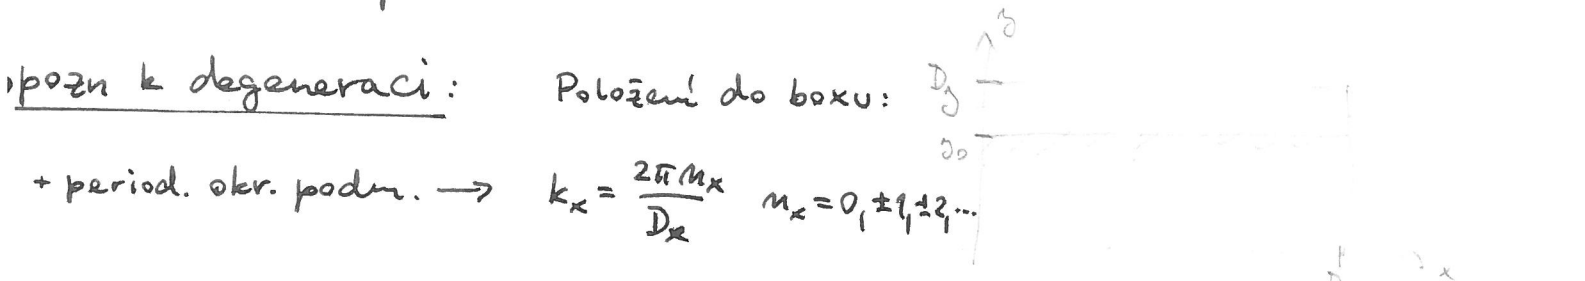 pozn k degeneraci: Položení do boxu:
+ period. okr. podm. → kₓ = 2πnₓ/Dₓ nₓ = 0, ±1, ±2, ...
y
D_y
y₀
x